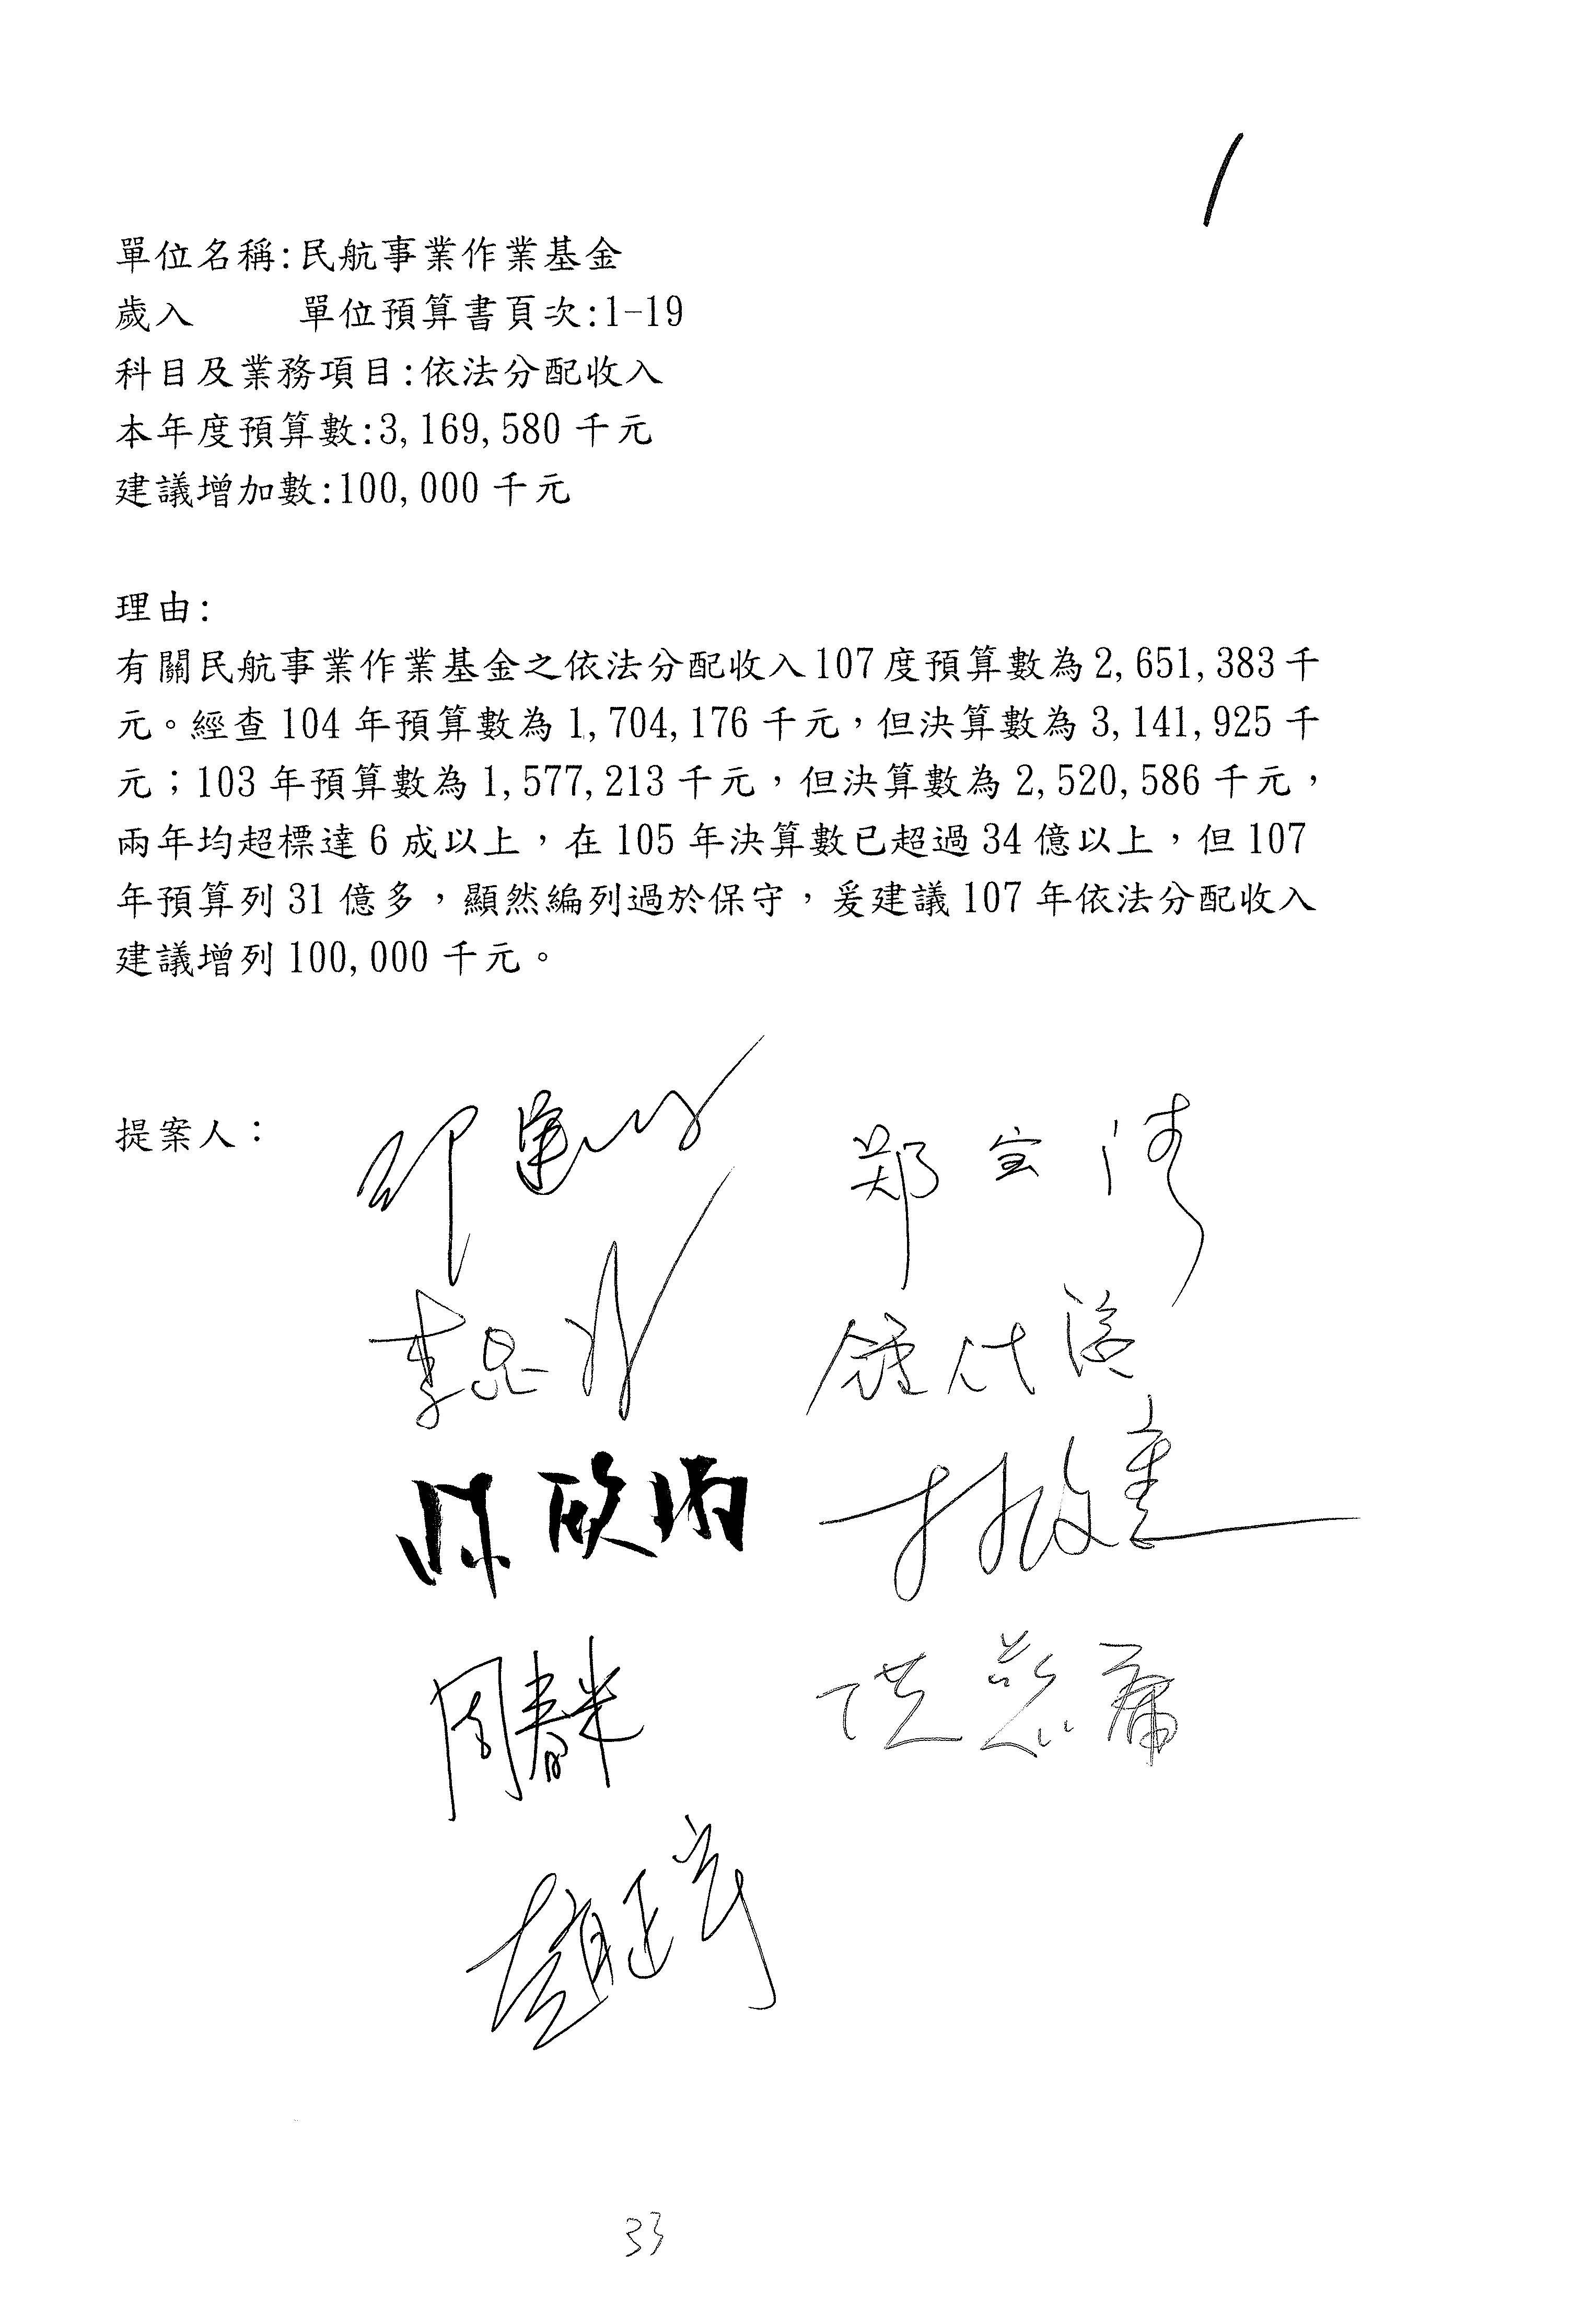 1
單位名稱:民航事業作業基金
歲入 單位預算書頁次:1-19
科目及業務項目:依法分配收入
本年度預算數:3,169,580 千元
建議增加數:100,000 千元
理由:
有關民航事業作業基金之依法分配收入107度預算數為2,651,383千
元。經查 104 年預算數為 1,704,176 千元，但決算數為 3,141,925 千
元；103 年預算數為 1,577,213 千元，但決算數為 2,520,586 千元，
兩年均超標達 6 成以上，在 105 年決算數已超過 34 億以上，但 107
年預算列 31 億多，顯然編列過於保守，爰建議 107 年依法分配收入
建議增列 100,000 千元。
提案人：
郑宝清
李昆
陳歐珀
周春米
趙正宇
33